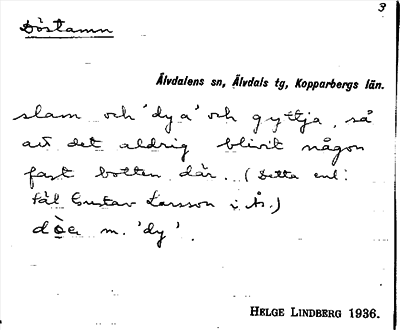 3
Döstamn
Älvdalens sn, Älvdals tg, Kopparbergs län.
slam och 'dya' och gyttja, så
att det aldrig blivit någon
fast botten där. (Detta enl.
Gustav Larsson i Ås.)
m. 'dy'.
HELGE LINDBERG 1936.